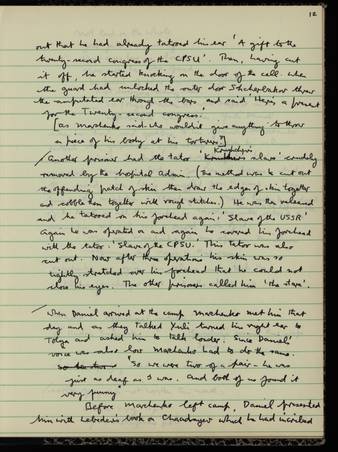 12
out that he had already tatooed his ear 'A gift to the
twenty-second congress of the CPSU'. Then, having cut
it off, he started knocking on the door of the cell. When
the guard had unlocked the outer door Shcherbakov threw
the amputated ear through the bars and said Here's a present
for the Twenty-second congress.
[as Marchenko said: who wouldn't give anything to throw
a piece of his body at his torturers?]
Krushchev's
/ Another prisoner had the tatoo slave crudely
removed by the hospital admin. (The method was to cut out
the offending patch of skin then draw the edges of skin together
and cobble them together with rough stitches.) He was then released
and he tatooed on his forehead again: 'Slave of the USSR'
Again he was operated on and again he covered his forehead
with the tatoo: 'Slave of the CPSU'. This tatoo was also
cut out. Now after three operations his skin was so
tightly stretched over his forehead that he could not
close his eyes. The other prisoners called him 'the stare'.
/ When Daniel arrived at the camp Marchenko met him that
day and as they talked Yuli turned his right ear to
Tolya and asked him to talk louder. Since Daniel's
voice was also low Marchenko had to do the same.
"So we were two of a pair - he was
just as deaf as I was. And both of us found it
very funny"
Before Marchenko left camp, Daniel presented
him with Lebedev's book on Chaadayev which he had inscribed